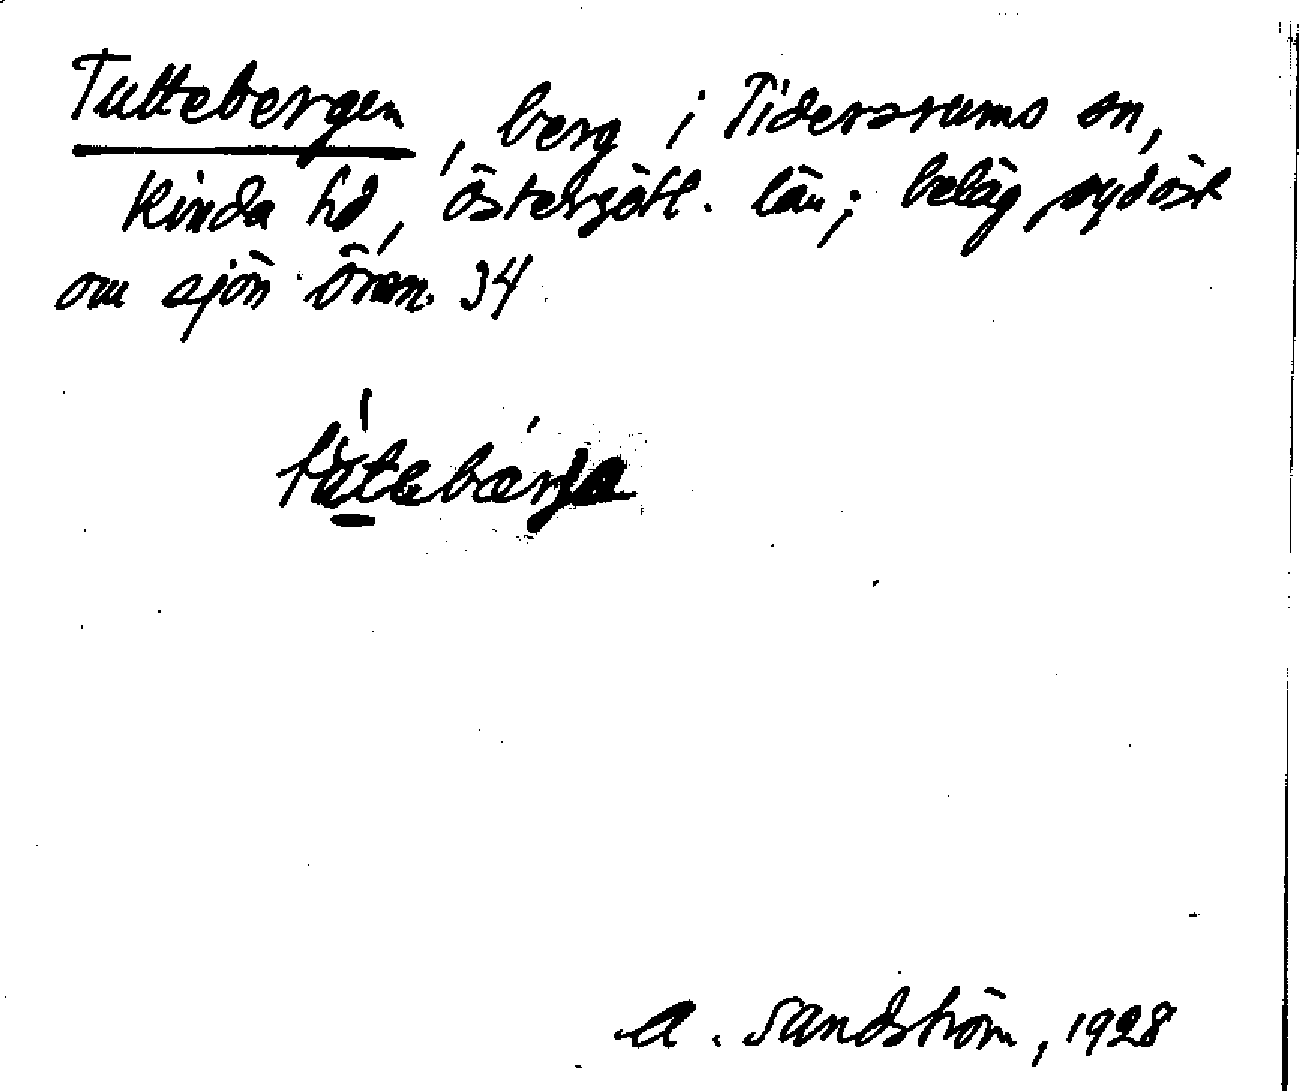 Tuttebergen, berg i Tidersrums sn,
Kinda hd, Östergötl. län; beläg sydöst
om sjön Ören. 34
tu̲tebærja
A. Sandström, 1928